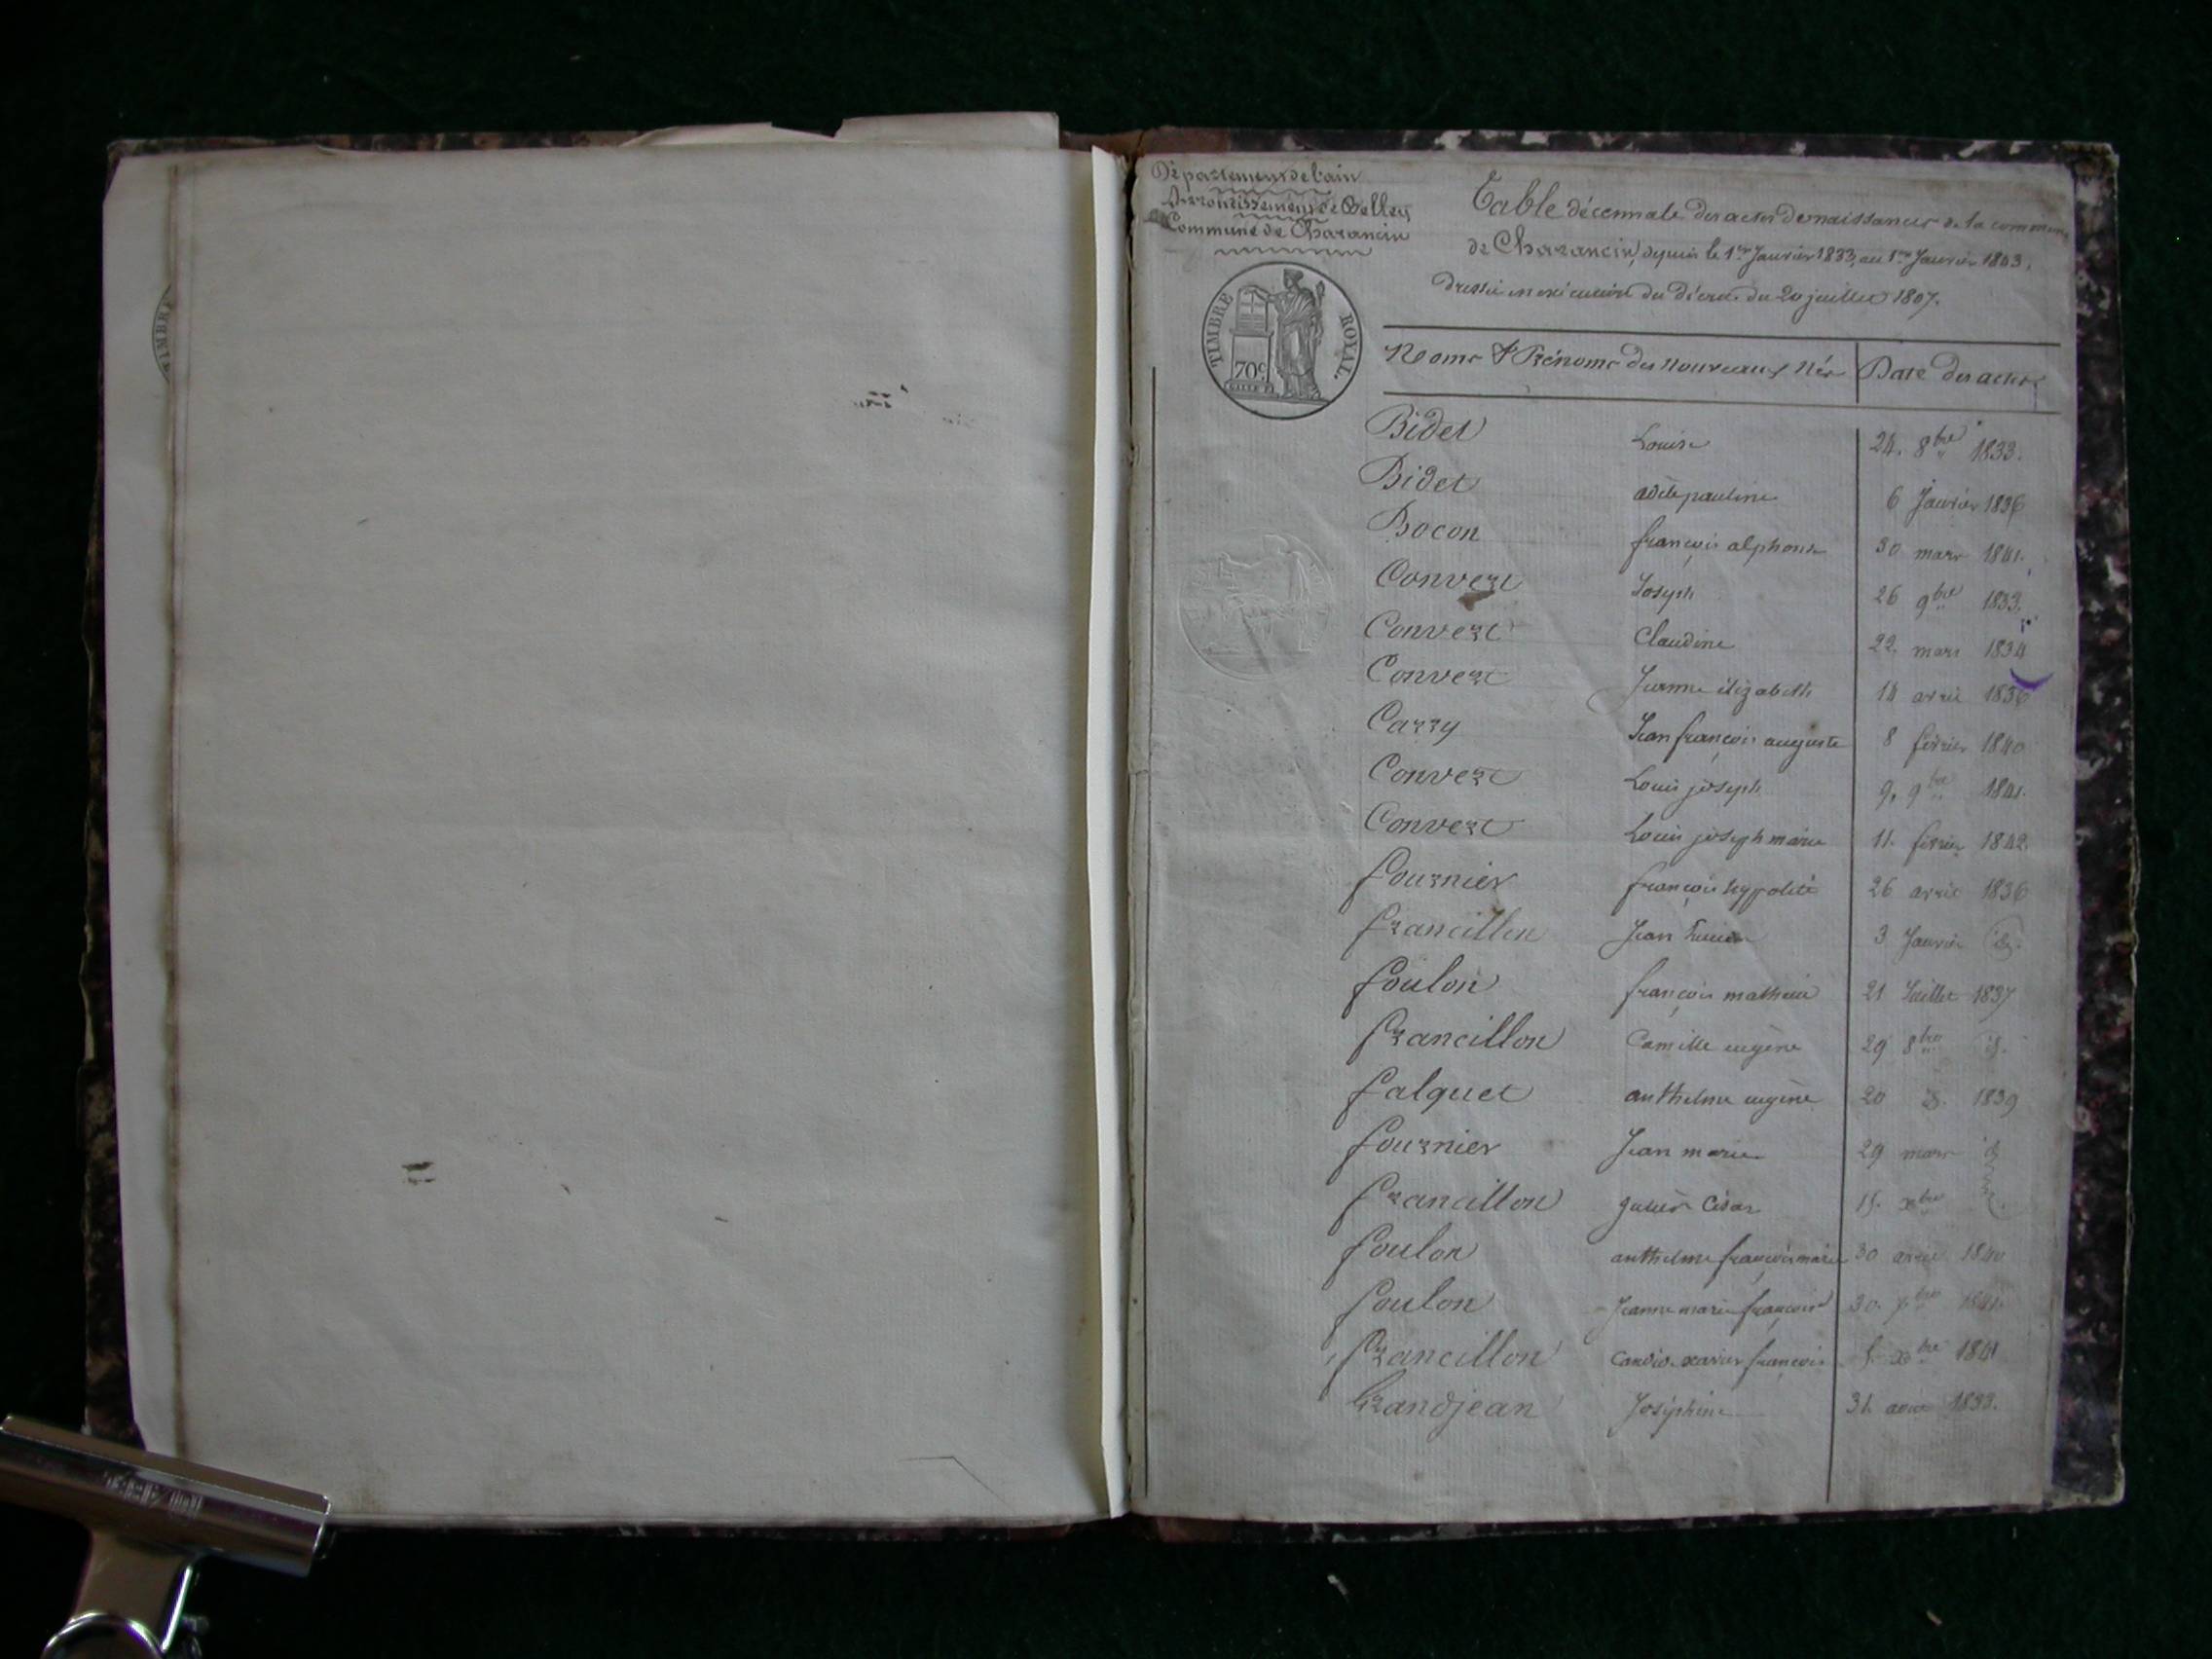 Département de l'ain
Arrondissement de Belley
Commune de Charancin
Table décennale des actes de naissances de la commune
de Charancin, depuis le 1er Janvier 1833, au 1er Janvier 1843,
dressée en exécution du décret du 20 juillet 1807.
TIMBRE ROYAL.
70c
TIMBRE
Noms & Prénoms des Nouveaux Nés Date des actes
Bidet Louise 24. 8bre 1833.
Bidet adèle pauline 6 Janvier 1836
Bocon françois alphonse 30 mars 1841.
Convert Joseph 26 9bre 1833.
Convert Claudine 22 mars 1834
Convert Jeanne élizabeth 14 avril 1836
Carry Jean françois auguste 8 février 1840
Convert Louis joseph 9. 9bre 1841.
Convert Louis joseph marie 11. février 1842.
fournier françois hypolite 26 avril 1836
francillon Jean 3 Janvier id.
foulon françois mathieu 21 Juillet 1837
francillon Camille eugène 29 8bre id.
falquet anthelme eugène 20 id. 1839
fournier Jean marie 29 mars id
francillon César 15. xbre
foulon anthelme françois marie 30 avril 1840
foulon Jeanne marie françoise 30. 7bre 1841.
francillon xavier françois xbre 1841
Grandjean Joséphine 31. 1833.